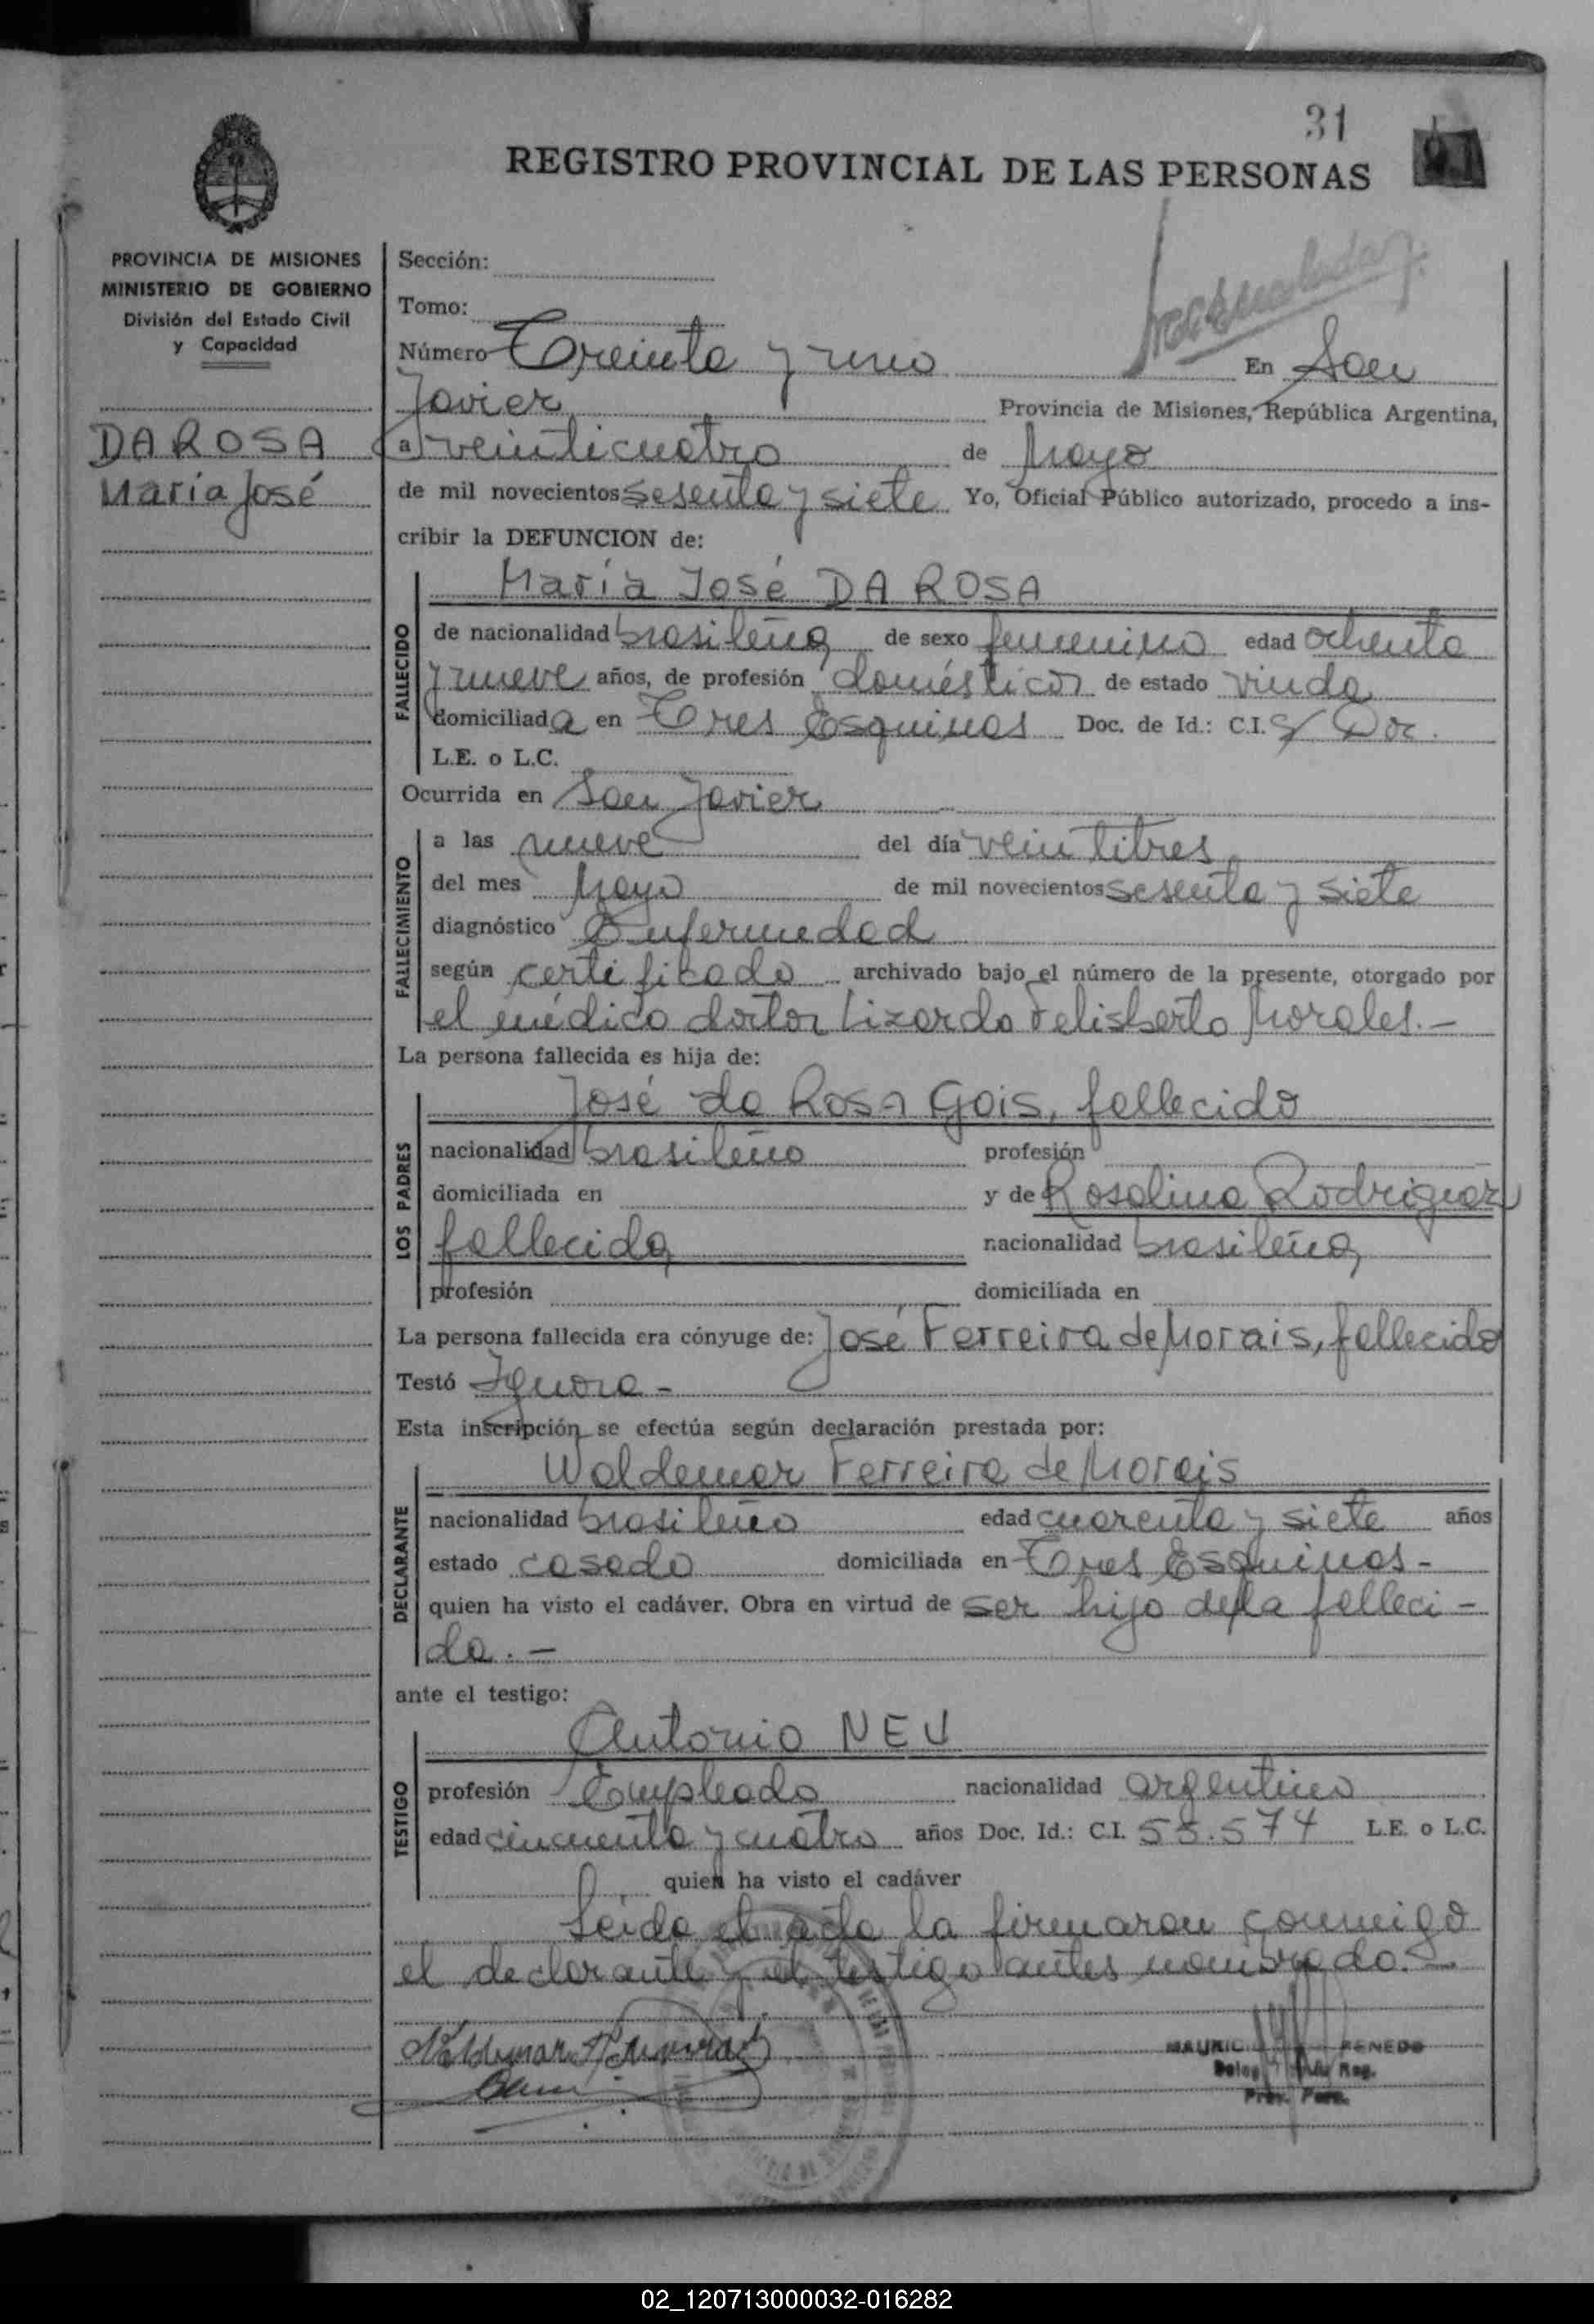 31
REGISTRO PROVINCIAL DE LAS PERSONAS
PROVINCIA DE MISIONES
MINISTERIO DE GOBIERNO
División del Estado Civil
y Capacidad
DA ROSA
María José
Sección:
Tomo:
Número Treinta y uno En San
Javier Provincia de Misiones, República Argentina,
a veinticuatro de Mayo
de mil novecientos sesenta y siete Yo, Oficial Público autorizado, procedo a ins-
cribir la DEFUNCION de:
María José DA ROSA
FALLECIDO
de nacionalidad brasileña de sexo femenino edad ochenta
y nueve años, de profesión domésticos de estado viuda
domiciliada en Tres Esquinas Doc. de Id.: C.I. S/ Doc.
L.E. o L.C.
Ocurrida en San Javier
FALLECIMIENTO
a las nueve del día veintitres
del mes Mayo de mil novecientos sesenta y siete
diagnóstico Enfermedad
según certificado archivado bajo el número de la presente, otorgado por
el médico doctor Lizardo Felisberto Morales.-
La persona fallecida es hija de:
LOS PADRES
José da Rosa Gois, fallecido
nacionalidad brasileño profesión
domiciliada en y de Rosalina Rodriguez
fallecida nacionalidad brasileña
profesión domiciliada en
La persona fallecida era cónyuge de: José Ferreira de Morais, fallecido
Testó Ignora-
Esta inscripción se efectúa según declaración prestada por:
DECLARANTE
Waldemar Ferreira de Morais
nacionalidad brasileño edad cuarenta y siete años
estado casado domiciliada en Tres Esquinas-
quien ha visto el cadáver. Obra en virtud de ser hijo de la falleci-
da.-
ante el testigo:
TESTIGO
Antonio NEU
profesión Empleado nacionalidad argentino
edad cincuenta y cuatro años Doc. Id.: C.I. 55.574 L.E. o L.C.
quien ha visto el cadáver
Leída el acta la firmaron conmigo
el declarante y el testigo antes nombrado.-
MAURIC PENEDO
Reg.
Prov. Pers.
02_120713000032-016282